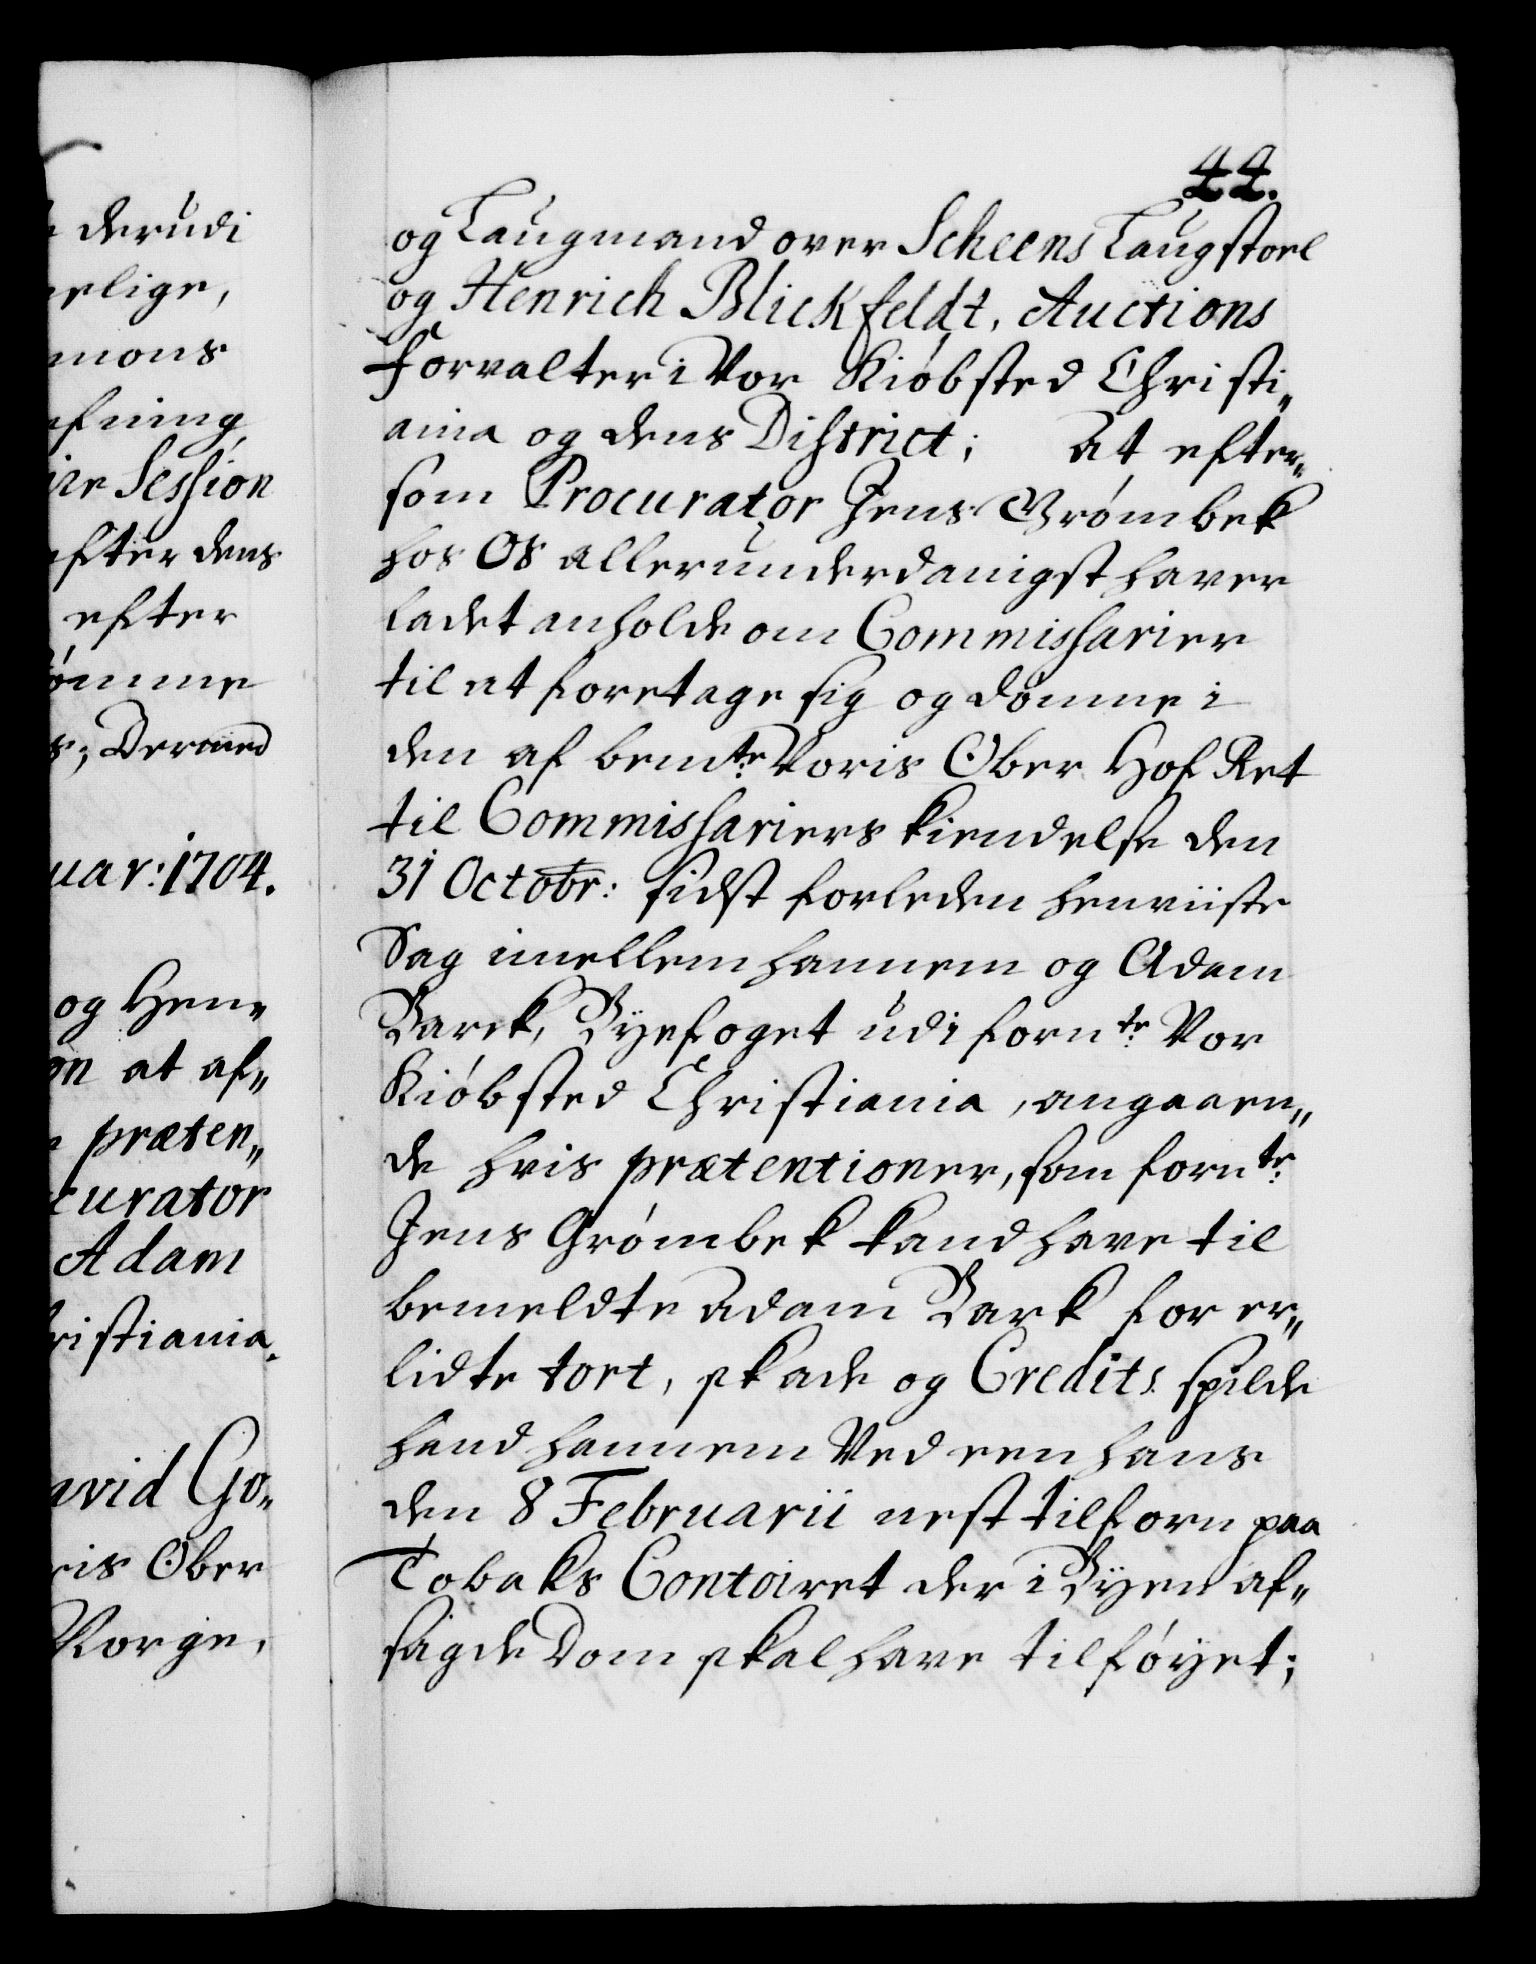 derudi
erlige,
mons
efning
ire Session
efter dens
efter
ómme
s; Dermed
uar: 1704.
og Hen„
on at af„
præten„
curator
Adam
ristiania.
avid Go„
ris Ober
Norge,
44.
og Laugmand over Scheens Laugstoel
og Henrich Blickfeldt, Auctions
forvalter i Vor Kiöbsted Christi„
ania og dens District; At efter„
som Procurator Jens Grómbek
hos Os allerunderdanigst haver
ladet anholde om Commissarier
til at foretage sig og dómme i
den af bemte: Voris Ober Hof Ret
til Commissariers kiendelse den
31 Octobr: sidst forleden henviiste
Sag imellem hannem og Adam
Barck, Byefoget udi fornte: Vor
Kióbsted Christiania, angaaen„
de hvis prætentioner, som fornte:
Jens Grómbek kand have til
bemeldte Adam Bark for er„
lidte tort, skade og Credits spilde
hand hannem Ved een hans
den 8 Februarii nest tilforn paa
Tobaks Contoiret der i Byen af„
sagde Dom skal have tilföyet;